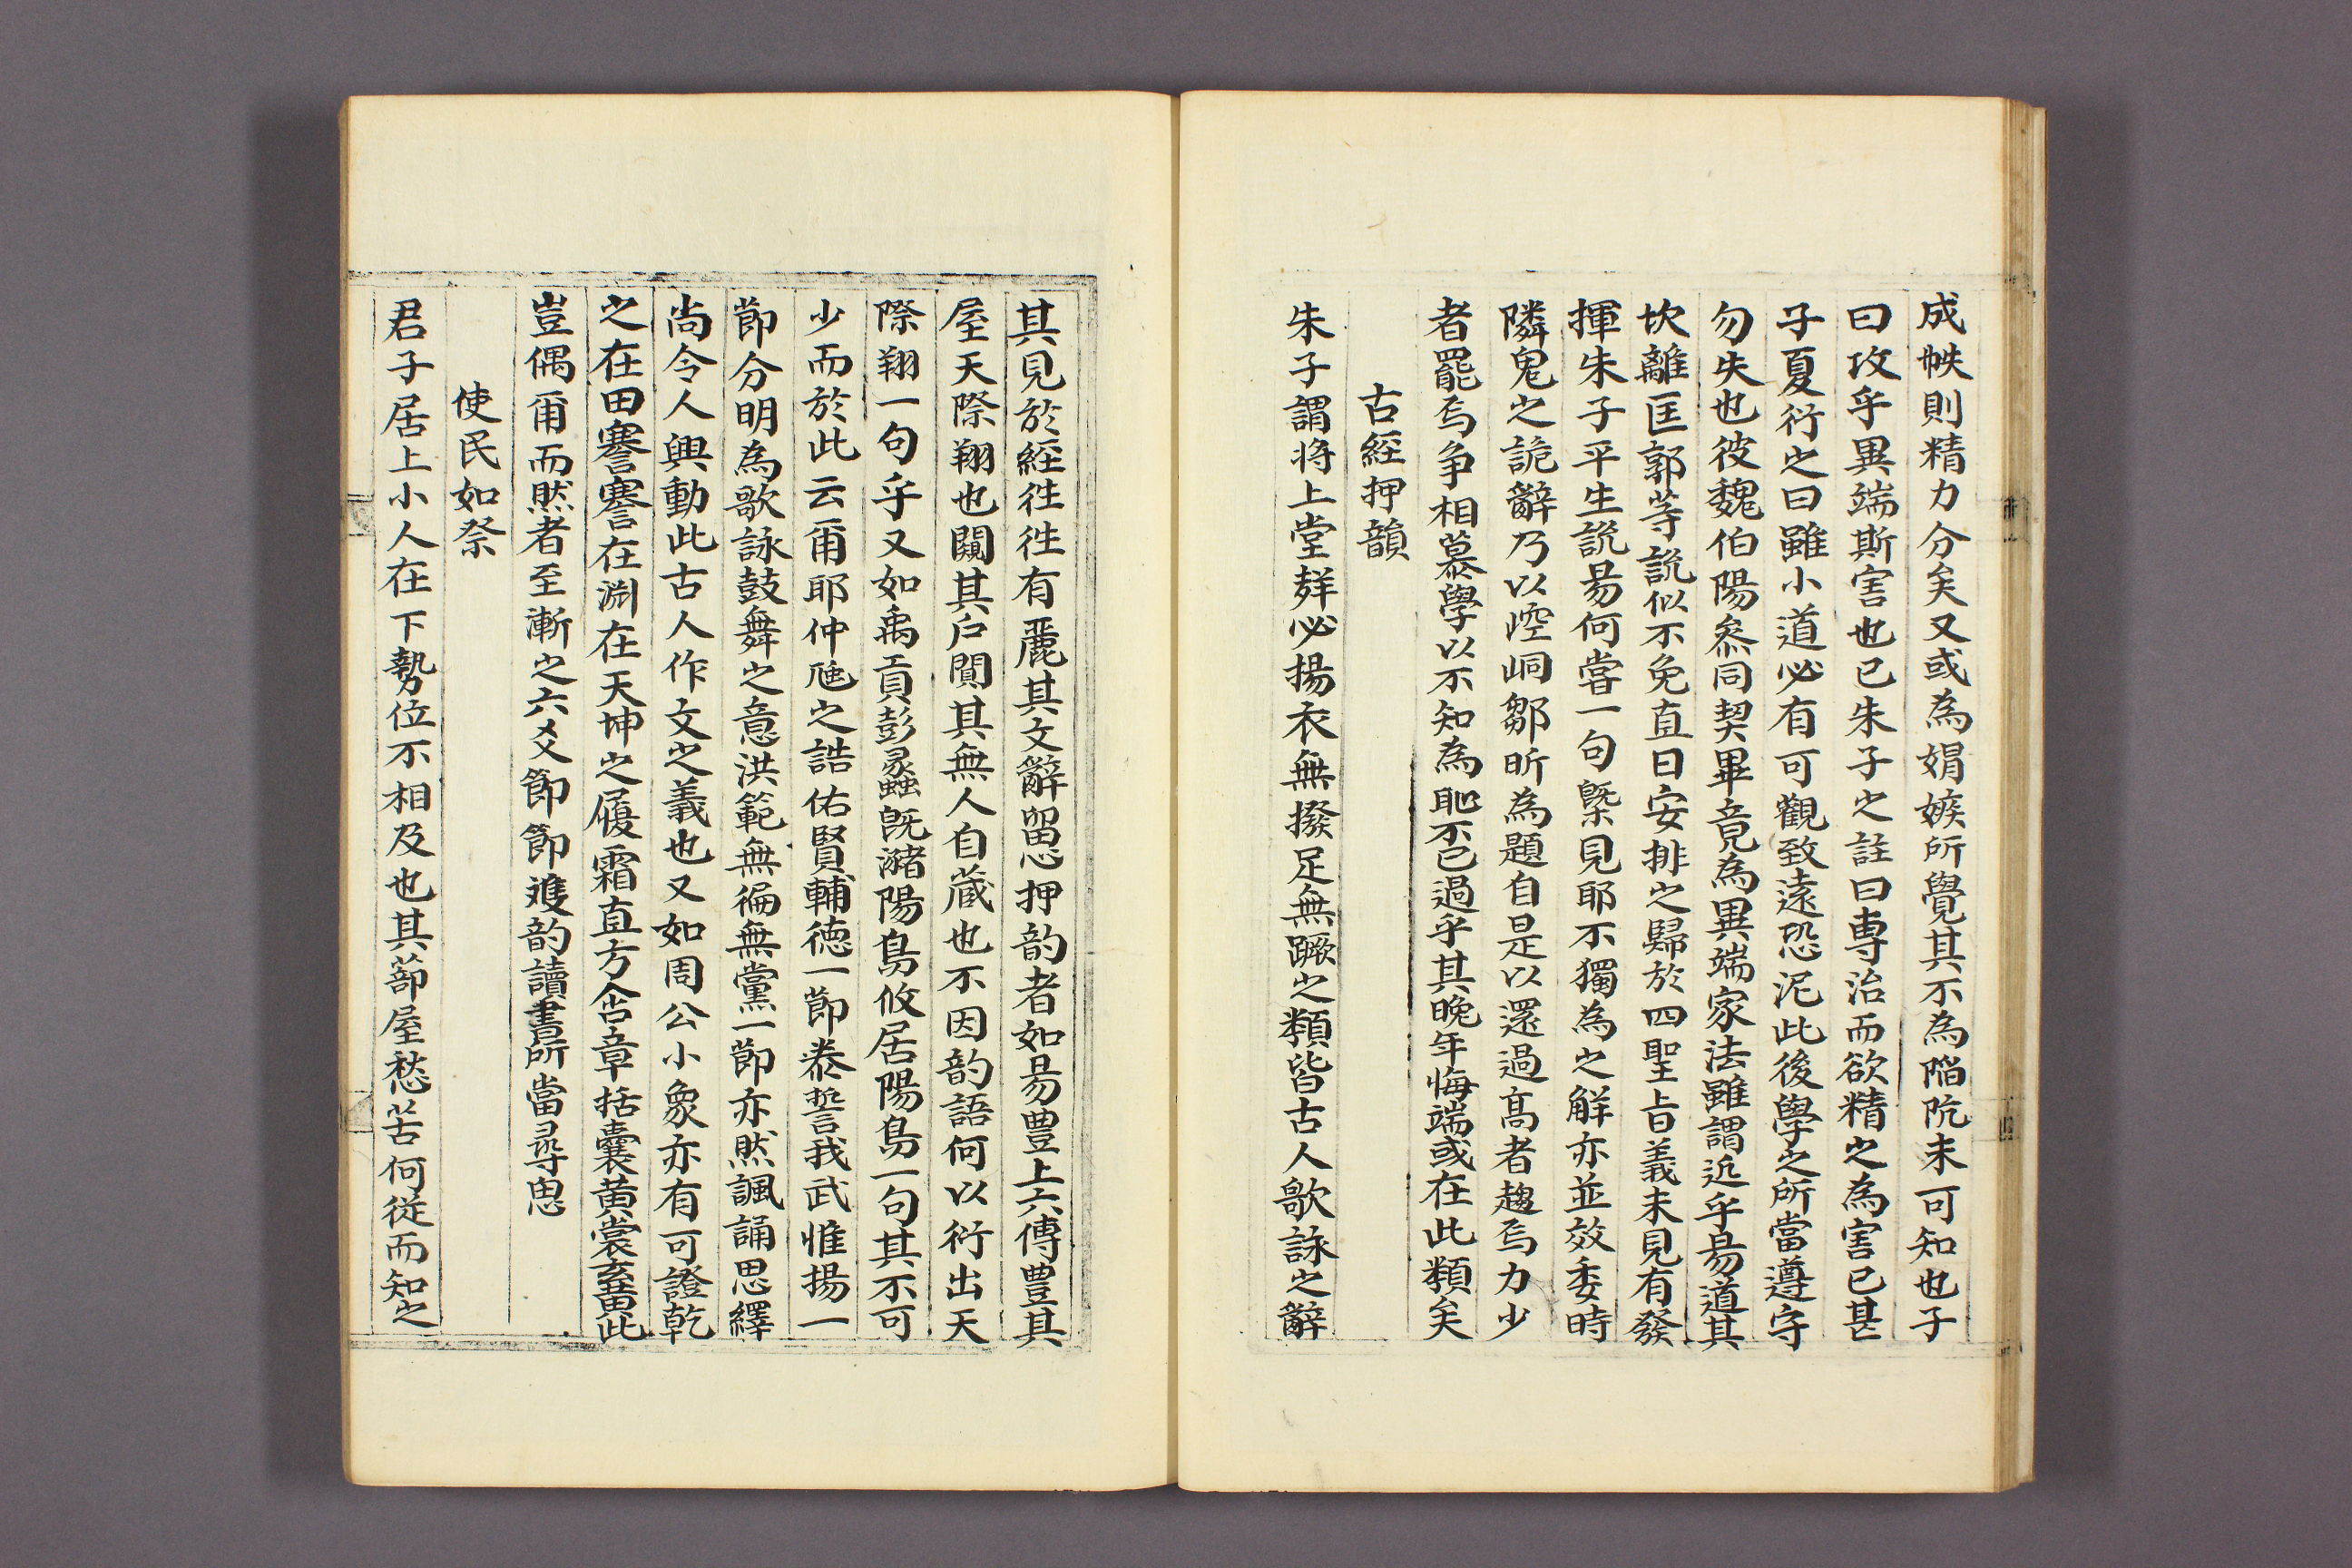 成帙則精力分矣又或為娟嫉所覺其不為陷阬未可知也子
曰攻乎異端斯害也已朱子之註曰專治而欲精之為害已甚
子夏衍之曰雖小道必有可觀致遠恐泥此後學之所當遵守
勿失也彼魏伯陽叅同契畢竟為異端家法雖謂近乎易道其
坎離匡郭等說似不免直日安排之歸於四聖旨義未見有發
揮朱子平生說易何嘗一句槩見耶不獨為之解亦並效委時
隣鬼之詭辭乃以崆峒鄒昕為題自是以還過髙者趨焉力少
者罷焉争相慕學以不知為耻不已過乎其晚年悔端或在此類矣
古經押韻
朱子謂将上堂聲必揚衣無撥足無蹶之類皆古人歌詠之辭
其見於經徃徃有麗其文辭留心押韵者如易豊上六傳豊其
屋天際翔也闚其戶闃其無人自蔵也不因韵語何以衍出天
際翔一句乎又如禹貢彭蠡旣瀦陽鳥攸居陽鳥一句其不可
少而於此云爾耶仲虺之誥佑賢輔德一節泰誓我武惟揚一
節分明為歌詠鼓舞之意洪範無偏無黨一節亦然諷誦思繹
尚令人興動此古人作文之義也又如周公小象亦有可證乾
之在田謇謇在淵在天坤之履霜直方含章括囊黄裳玄畨此
豈偶爾而然者至漸之六爻節節進韵讀書所當尋思
使民如祭
君子居上小人在下勢位不相及也其蔀屋愁苦何從而知之